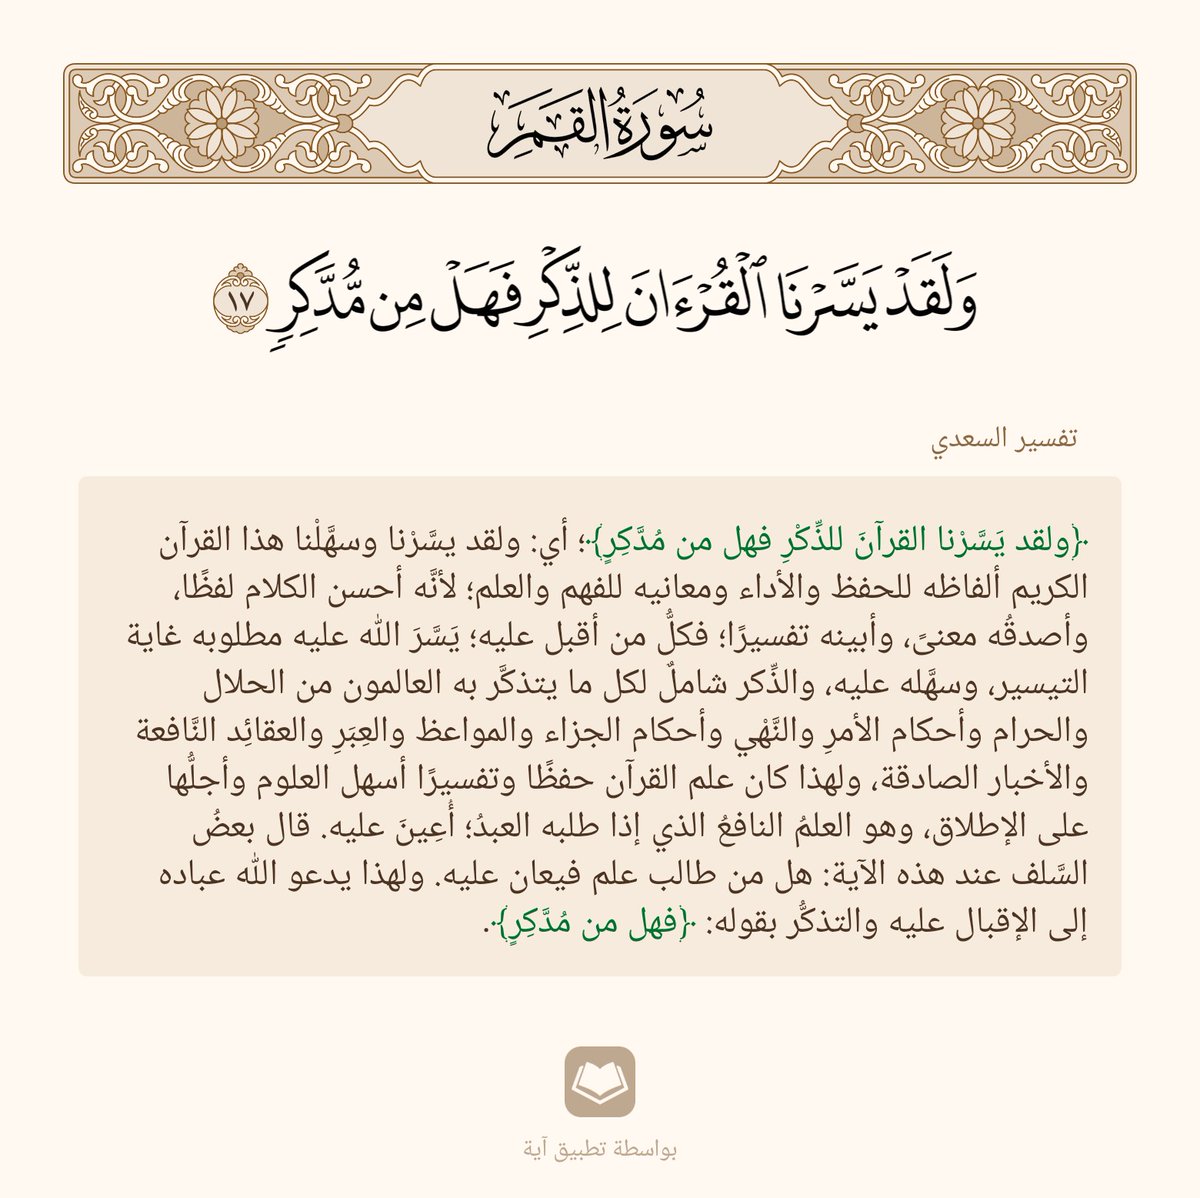 سُورَةُ القَمَرِ
وَلَقَدۡ يَسَّرۡنَا ٱلۡقُرۡءَانَ لِلذِّكۡرِ فَهَلۡ مِن مُّدَّكِرٖ ١٧
تفسير السعدي
﴿ولقد يَسَّرْنا القرآنَ للذِّكْرِ فهل من مُدَّكِرٍ﴾؛ أي: ولقد يسَّرْنا وسهَّلْنا هذا القرآن
الكريم ألفاظه للحفظ والأداء ومعانيه للفهم والعلم؛ لأنَّه أحسن الكلام لفظًا،
وأصدقُه معنىً، وأبينه تفسيرًا؛ فكلُّ من أقبل عليه؛ يَسَّرَ الله عليه مطلوبه غاية
التيسير، وسهَّله عليه، والذِّكر شاملٌ لكل ما يتذكَّر به العالمون من الحلال
والحرام وأحكام الأمرِ والنَّهْي وأحكام الجزاء والمواعظ والعِبَرِ والعقائِد النَّافعة
والأخبار الصادقة، ولهذا كان علم القرآن حفظًا وتفسيرًا أسهل العلوم وأجلُّها
على الإطلاق، وهو العلمُ النافعُ الذي إذا طلبه العبدُ؛ أُعِينَ عليه. قال بعضُ
السَّلف عند هذه الآية: هل من طالب علم فيعان عليه. ولهذا يدعو الله عباده
إلى الإقبال عليه والتذكُّر بقوله: ﴿فهل من مُدَّكِرٍ﴾.
بواسطة تطبيق آية